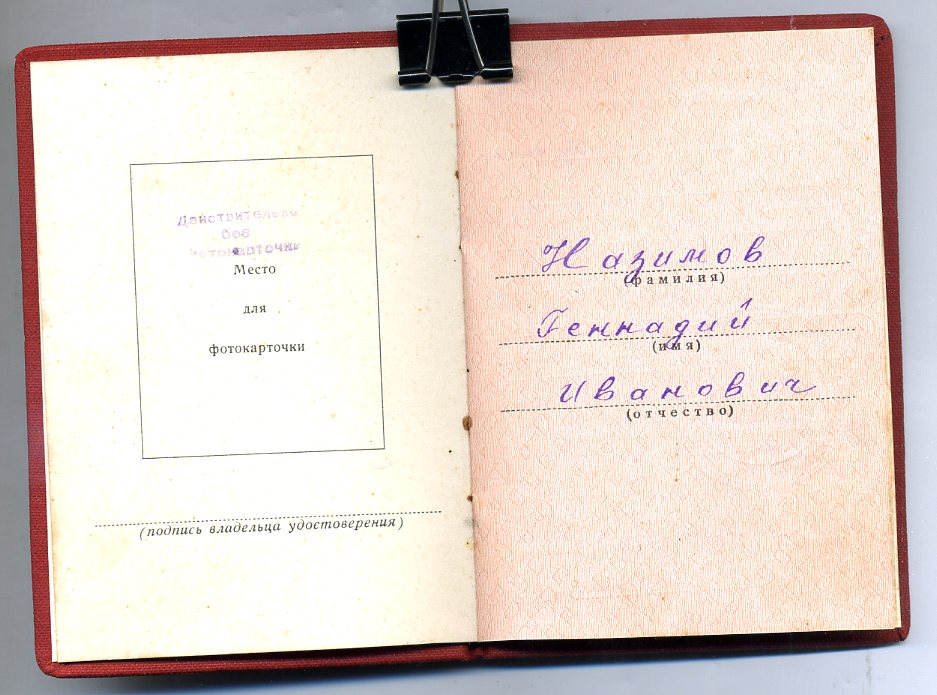 Действительно
без
фотокарточки
Место
для
фотокарточки
(подпись владельца удостоверения)
Назимов
(фамилия)
Геннадий
(имя)
Иванович
(отчество)